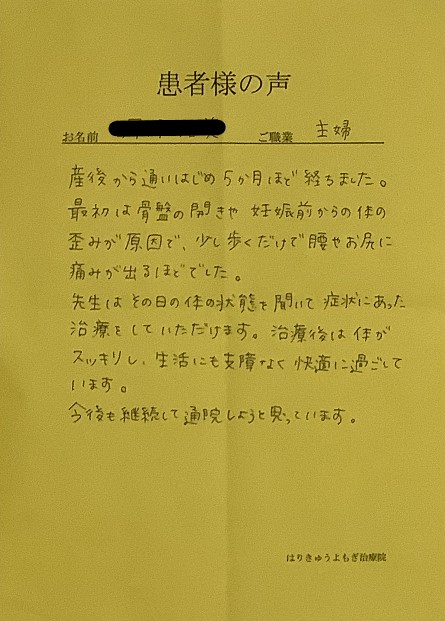 患者様の声
お名前 ご職業 主婦
産後から通いはじめ5か月ほど経ちました。
最初は骨盤の開きや妊娠前からの体の
歪みが原因で、少し歩くだけで腰やお尻に
痛みが出るほどでした。
先生はその日の体の状態を聞いて症状にあった
治療をしていただけます。治療後は体が
スッキリし、生活にも支障なく快適に過ごして
います。
今後も継続して通院しようと思っています。
はりきゅうよもぎ治療院